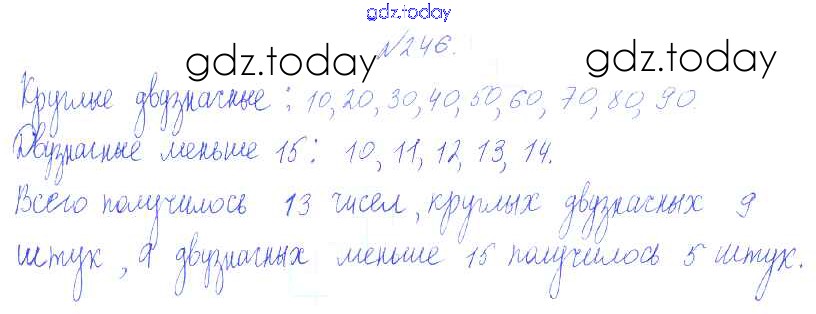 gdz.today
№246.
gdz.today gdz.today
Круглые двузначные: 10, 20, 30, 40, 50, 60, 70, 80, 90.
Двузначные меньше 15: 10, 11, 12, 13, 14.
Всего получилось 13 чисел, круглых двузначных 9
штук, а двузначных меньше 15 получилось 5 штук.